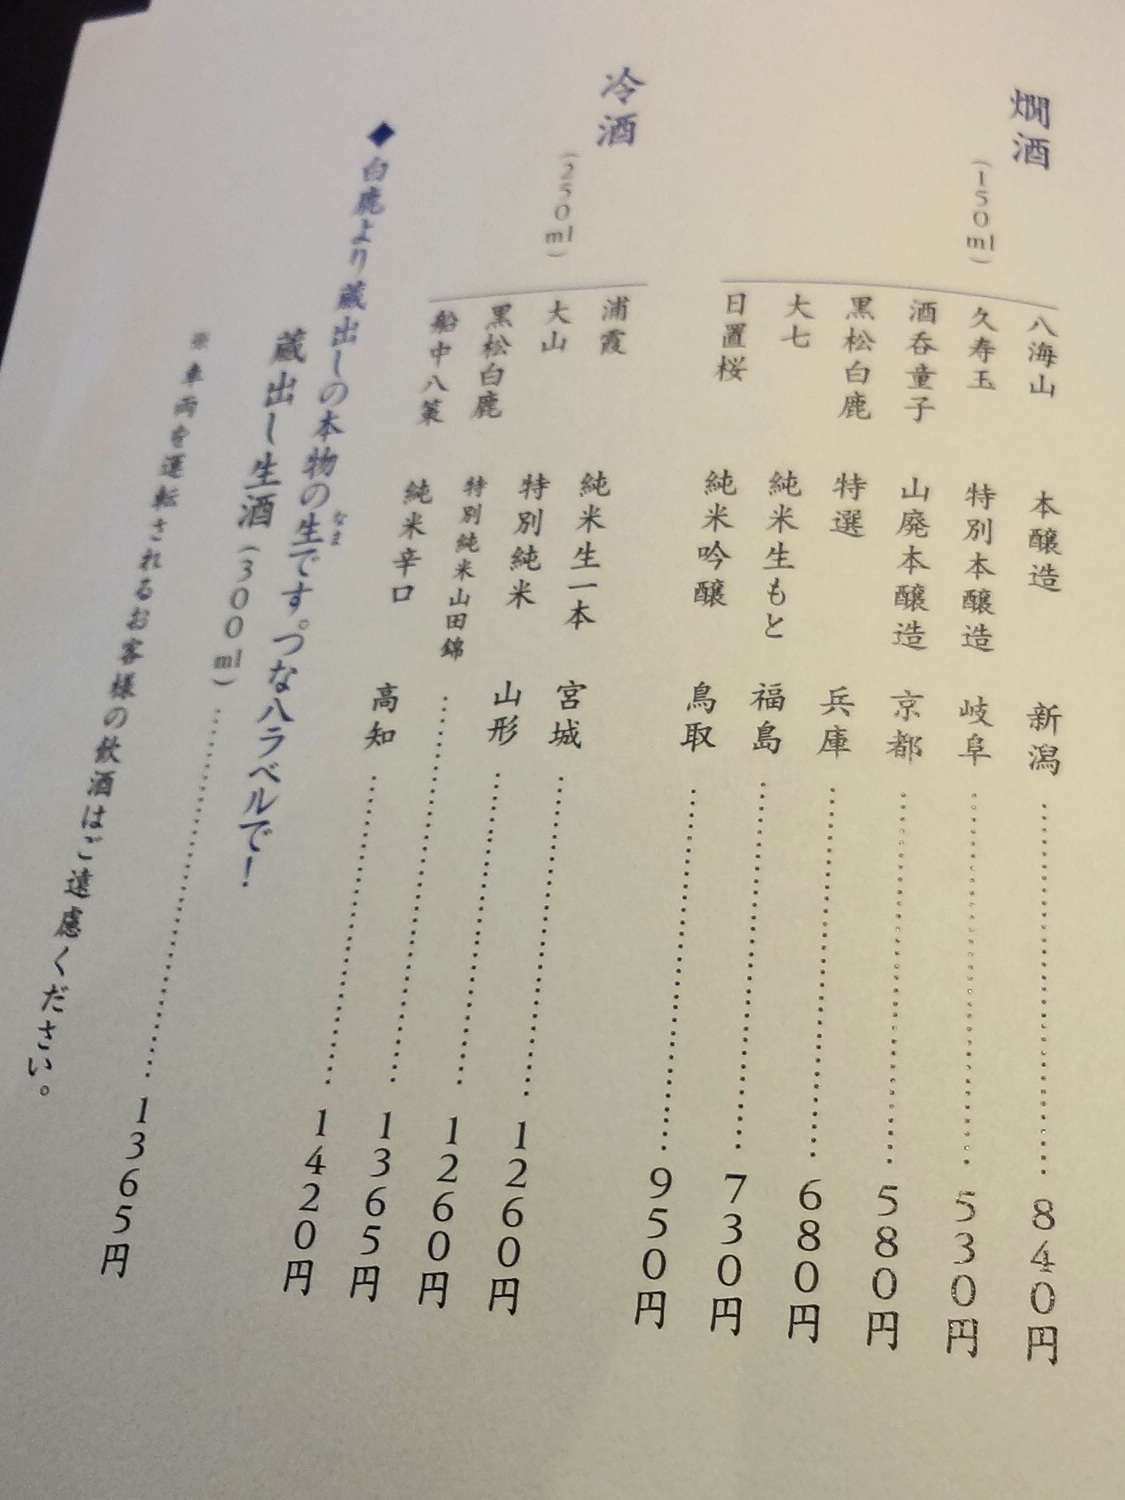 燗酒
(150ml)
八海山 本醸造 新潟 840円
久寿玉 特別本醸造 岐阜 530円
酒呑童子 山廃本醸造 京都 580円
黒松白鹿 特選 兵庫 680円
大七 純米生もと 福島 730円
日置桜 純米吟醸 鳥取 950円
冷酒
(250ml)
浦霞 純米生一本 宮城 1260円
大山 特別純米 山形 1260円
黒松白鹿 特別純米山田錦 1365円
船中八策 純米辛口 高知 1420円
◆白鹿より蔵出しの本物の生です。つな八ラベルで!
なま
蔵出し生酒(300ml) 1365円
※車両を運転されるお客様の飲酒はご遠慮ください。